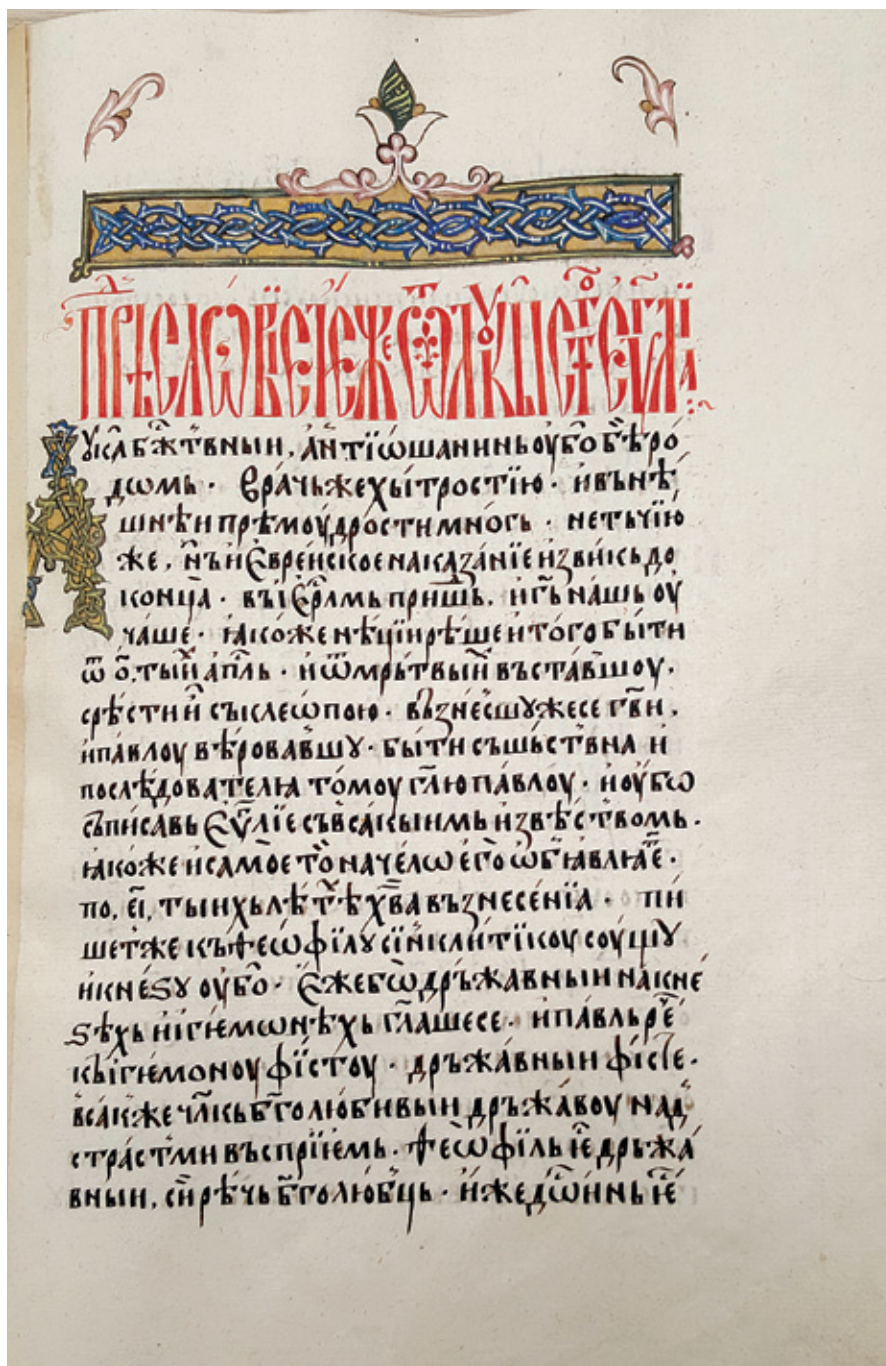 Прѣⷣсловїе ї҆еже ѿ лоукы ст҃го еѵⷢ҇лїа
Лука бж҃тⷭ҇вныи, а҆нтїѡшанинь оубо бѣ ро
дѡмь · врачьже хытростїю · и҆ вънѣ
шнѣи прѣмоудрости многь · не тъчїю
же, нъ и҆ єврейское наказанїе и҆звикь до
конца · въ і҆єрⷭ҇лмь пришⷣь, и҆ гь҃ нашь оу
чаше · ꙗкоже нѣцїи рѣше и҆ того быти
ѿ о҃. тый а҆пⷭ҇ль · и҆ ѿ мрьтвыⷯ въставшоу,
срѣсти й съ клеѡпою · възнесшу же се гв҃и,
и҆ павлоу вѣровавшу · быти съшьстⷡ҇на и҆
послѣдователꙗ томоу гл҃ю павлоу · и҆ оубѡ
съписавь єѵⷢ҇лїе съ всакыимь и҆звѣством̾ь ·
ꙗкоже и҆ самое то начелѡ его ѡб̾ꙗвлꙗеⷮ ·
по, е҃і, тыихь лѣтⷯѣ хв҃а възнесенїа · пи
шетже къ ѳеѡфїлу сїнклитїкоу соущу
и҆ кнеѕу оубо · Єже бѡ дръжавныи на кне
ѕѣхь и҆ і҆гїемѡнѣхь гл҃аше се · и҆ павль реⷱ҇
къ і҆гїемоноу фїстоу · дръжавныи фісте ·
всакже чл҃кь бг҃олюбивыи дръжавоу над
страстⷨи въспрїемь · ѳеѡфїль іе дръжа
вныи, сирѣчь бг҃олюбць · и҆же дѡинь іе